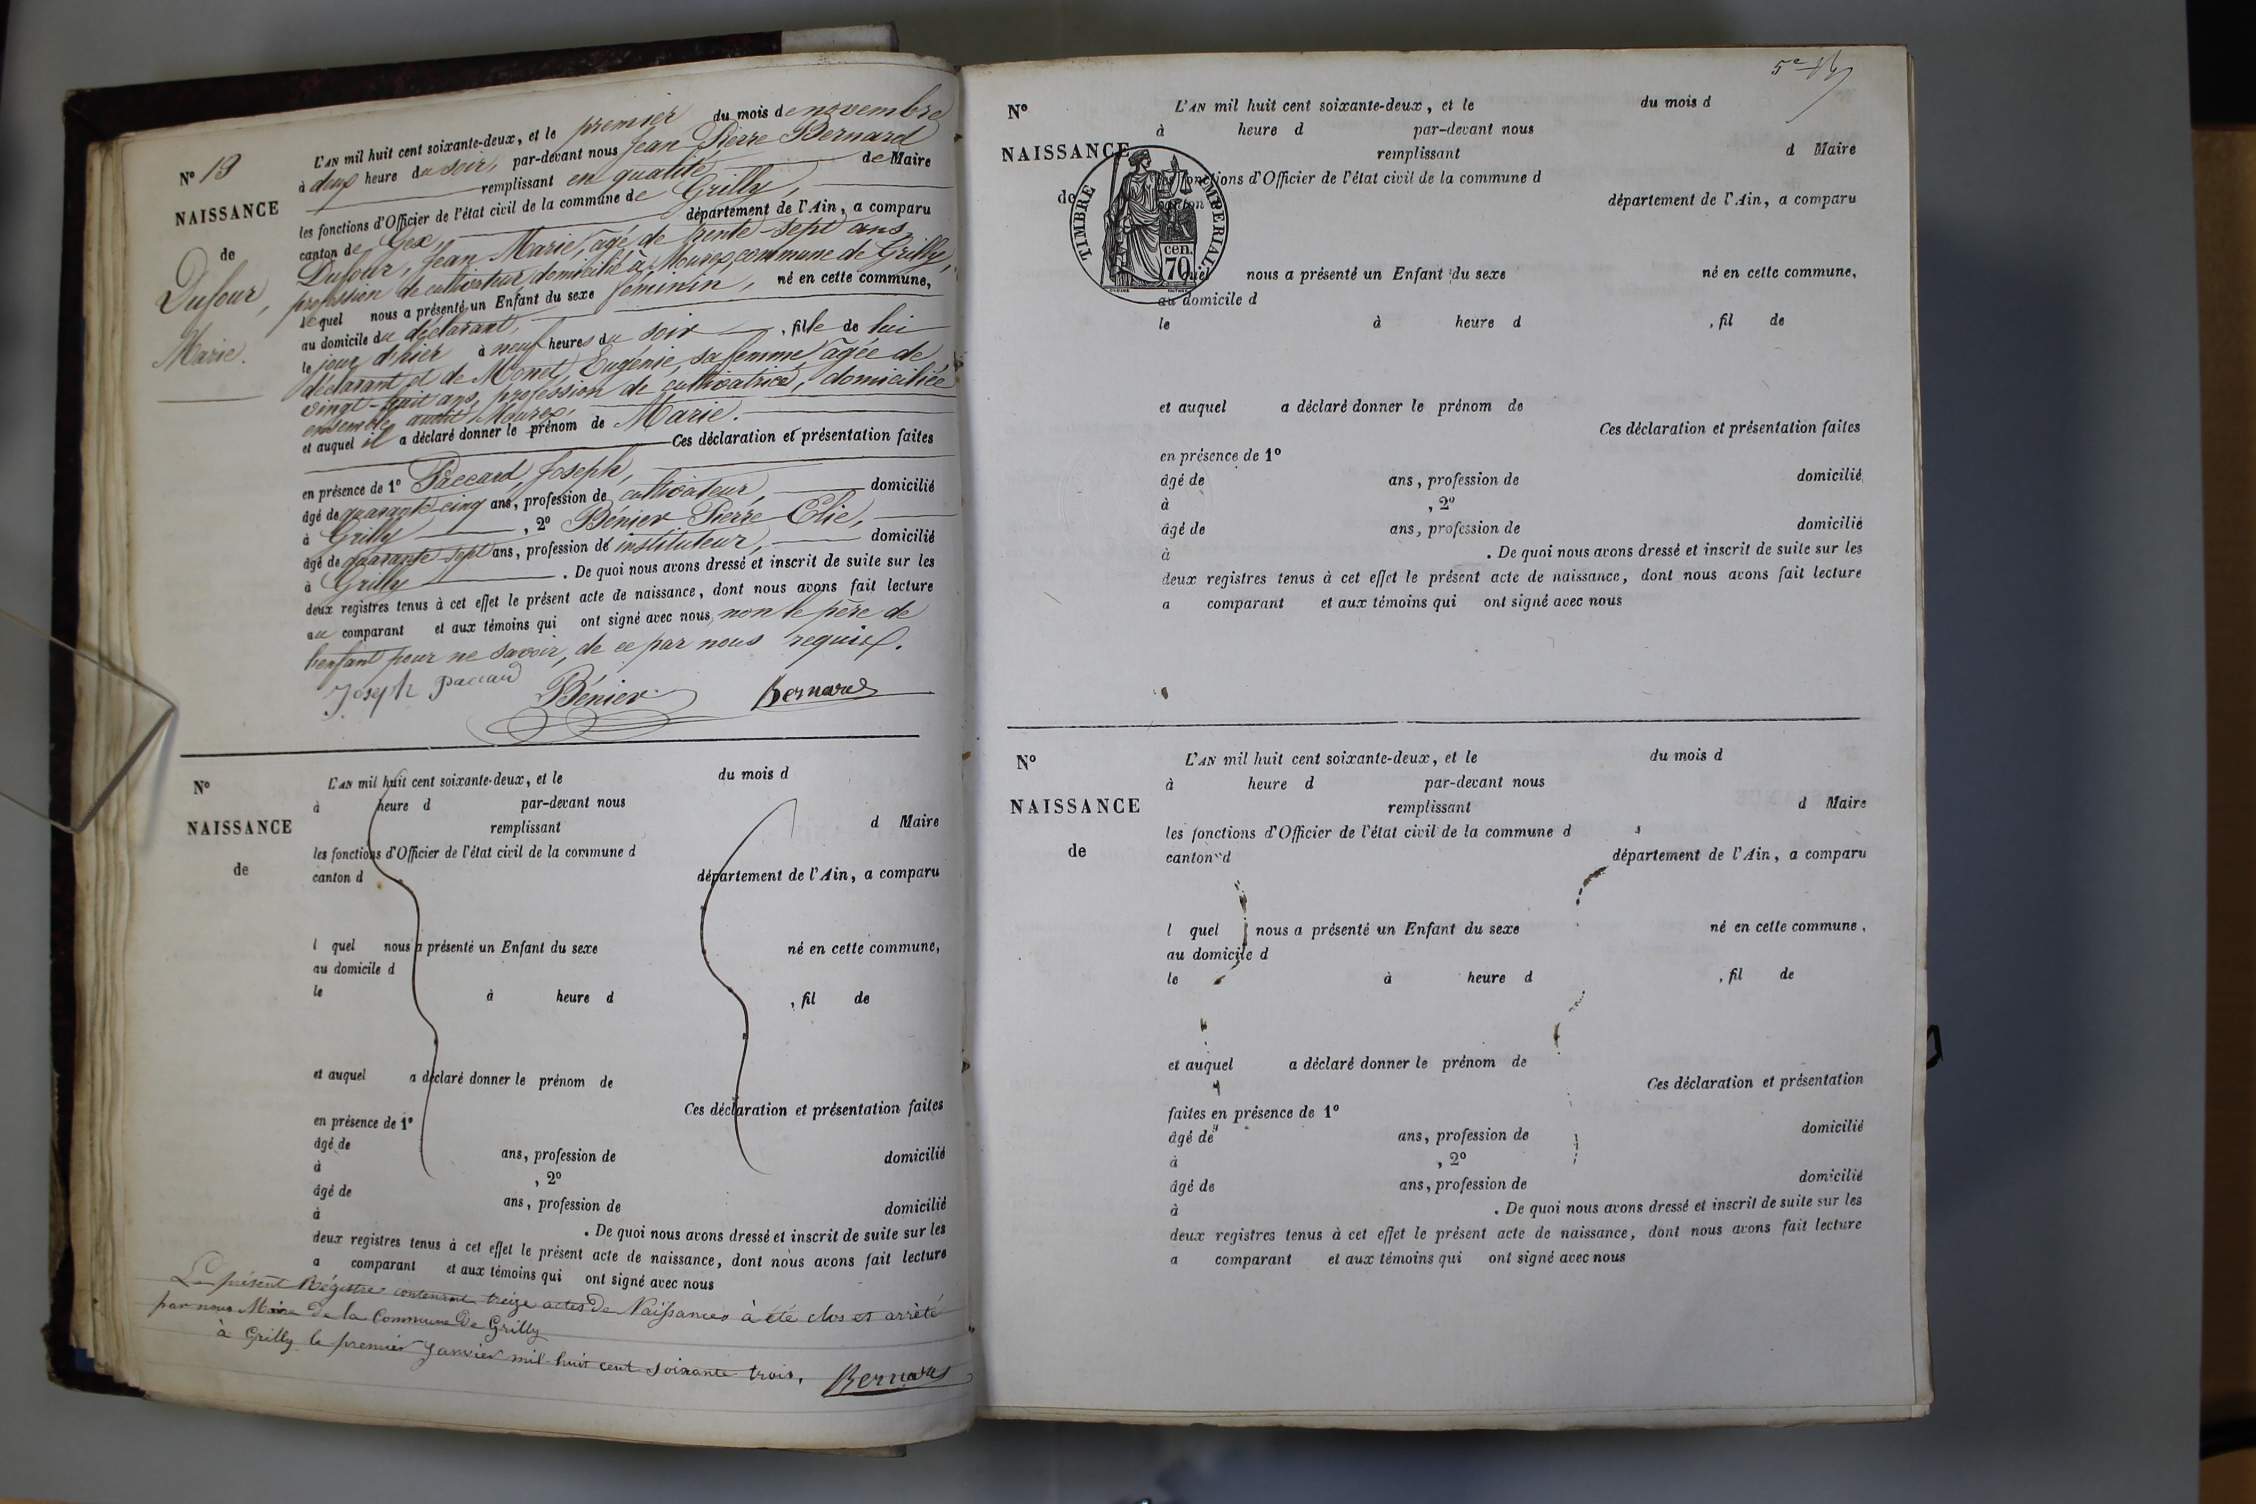 N° 13
NAISSANCE
de
Dufour,
Marie.
L'AN mil huit cent soixante-deux, et le premier du mois de novembre
à deux heure du soir, par-devant nous Jean Pierre Bernard
remplissant en qualité de Maire
les fonctions d'Officier de l'état civil de la commune de Grilly,
canton de Gex, département de l'Ain, a comparu
Dufour, Jean Marie, âgé de trente-sept ans,
profession de cultivateur, domicilié à Mourex, commune de Grilly,
lequel nous a présenté un Enfant du sexe féminin, né en cette commune,
au domicile du déclarant,
le jour d'hier à neuf heures du soir, fille de lui
déclarant et de Monet, Eugénie, sa femme âgée de
vingt-huit ans, profession de cultivatrice, domiciliée
ensemble audit Mourex,
et auquel il a déclaré donner le prénom de Marie.
Ces déclaration et présentation faites
en présence de 1° Paccard, Joseph,
âgé de quarante-cinq ans, profession de cultivateur, domicilié
à Grilly, 2° Bénier Pierre Elie,
âgé de quarante-sept ans, profession de instituteur, domicilié
à Grilly. De quoi nous avons dressé et inscrit de suite sur les
deux registres tenus à cet effet le présent acte de naissance, dont nous avons fait lecture
au comparant et aux témoins qui ont signé avec nous, non le père de
l'enfant pour ne savoir, de ce par nous requis.
Joseph paccard Bénier Bernard
N°
NAISSANCE
de
L'AN mil huit cent soixante-deux, et le du mois d
à heure d par-devant nous
remplissant d Maire
les fonctions d'Officier de l'état civil de la commune d
canton d département de l'Ain, a comparu
l quel nous a présenté un Enfant du sexe né en cette commune,
au domicile d
le à heure d , fil de
et auquel a déclaré donner le prénom de
Ces déclaration et présentation faites
en présence de 1°
âgé de ans, profession de domicilié
à , 2°
âgé de ans, profession de domicilié
à . De quoi nous avons dressé et inscrit de suite sur les
deux registres tenus à cet effet le présent acte de naissance, dont nous avons fait lecture
a comparant et aux témoins qui ont signé avec nous
Le présent Régistre contenant treize actes de Naissances à été clos et arrêté
par nous Maire de la Commune de Grilly
à Grilly le premier Janvier mil huit cent soixante trois.
Bernard
5e
N°
NAISSANCE
de
TIMBRE IMPERIAL
70 cen.
L'AN mil huit cent soixante-deux, et le du mois d
à heure d par-devant nous
remplissant d Maire
les fonctions d'Officier de l'état civil de la commune d
canton d département de l'Ain, a comparu
quel nous a présenté un Enfant du sexe né en cette commune,
au domicile d
le à heure d , fil de
et auquel a déclaré donner le prénom de
Ces déclaration et présentation faites
en présence de 1°
âgé de ans, profession de domicilié
à , 2°
âgé de ans, profession de domicilié
à . De quoi nous avons dressé et inscrit de suite sur les
deux registres tenus à cet effet le présent acte de naissance, dont nous avons fait lecture
a comparant et aux témoins qui ont signé avec nous
N°
NAISSANCE
de
L'AN mil huit cent soixante-deux, et le du mois d
à heure d par-devant nous
remplissant d Maire
les fonctions d'Officier de l'état civil de la commune d
canton d département de l'Ain, a comparu
l quel nous a présenté un Enfant du sexe né en cette commune,
au domicile d
le à heure d , fil de
et auquel a déclaré donner le prénom de
Ces déclaration et présentation
faites en présence de 1°
âgé de ans, profession de domicilié
à , 2°
âgé de ans, profession de domicilié
à . De quoi nous avons dressé et inscrit de suite sur les
deux registres tenus à cet effet le présent acte de naissance, dont nous avons fait lecture
a comparant et aux témoins qui ont signé avec nous